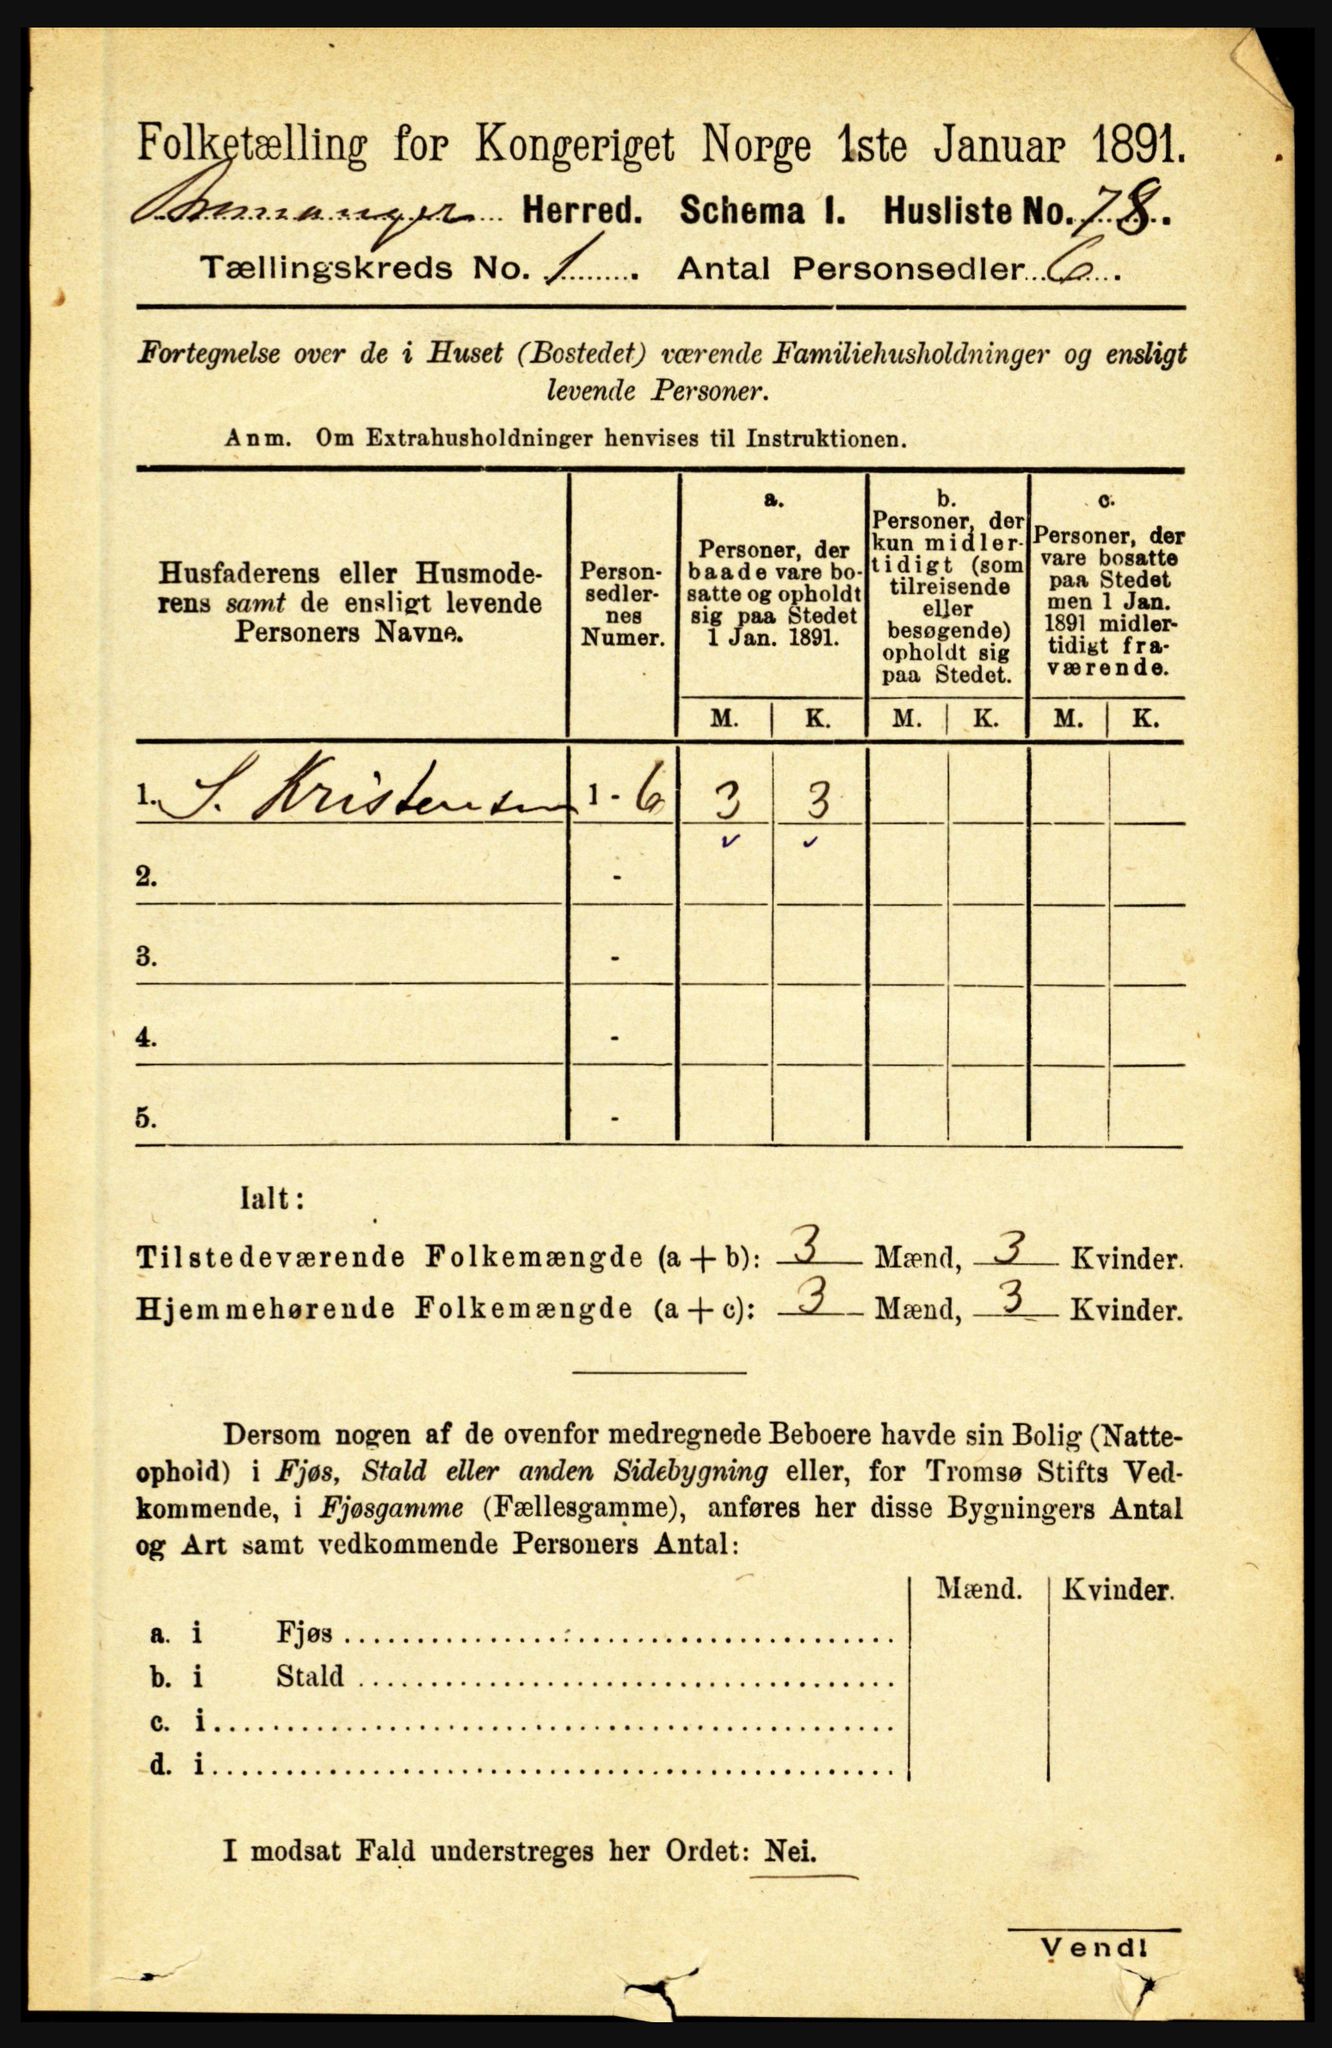 Folketælling for Kongeriget Norge 1ste Januar 1891.
Bremanger Herred. Schema I. Husliste No. 78.
Tællingskreds No. 1. Antal Personsedler 6.
Fortegnelse over de i Huset (Bostedet) værende Familiehusholdninger og ensligt
levende Personer.
Anm. Om Extrahusholdninger henvises til Instruktionen.
Husfaderens eller Husmode-
rens samt de ensligt levende
Personers Navne.
Person-
sedler-
nes
Numer.
a.
Personer, der
baade vare bo-
satte og opholdt
sig paa Stedet
1 Jan. 1891.
b.
Personer, der
kun midler-
tidigt (som
tilreisende
eller
besøgende)
opholdt sig
paa Stedet.
c.
Personer, der
vare bosatte
paa Stedet
men 1 Jan.
1891 midler-
tidigt fra-
værende.
M. K. M. K. M. K.
1. S. Kristensen 1 - 6 3 3
2. -
3. -
4. -
5. -
Ialt:
Tilstedeværende Folkemængde (a + b): 3 Mænd, 3 Kvinder.
Hjemmehørende Folkemængde (a + c): 3 Mænd, 3 Kvinder.
Dersom nogen af de ovenfor medregnede Beboere havde sin Bolig (Natte-
ophold) i Fjøs, Stald eller anden Sidebygning eller, for Tromsø Stifts Ved-
kommende, i Fjøsgamme (Fællesgamme), anføres her disse Bygningers Antal
og Art samt vedkommende Personers Antal:
Mænd. Kvinder.
a. i Fjøs
b. i Stald
c. i
d. i
I modsat Fald understreges her Ordet: Nei.
Vend!